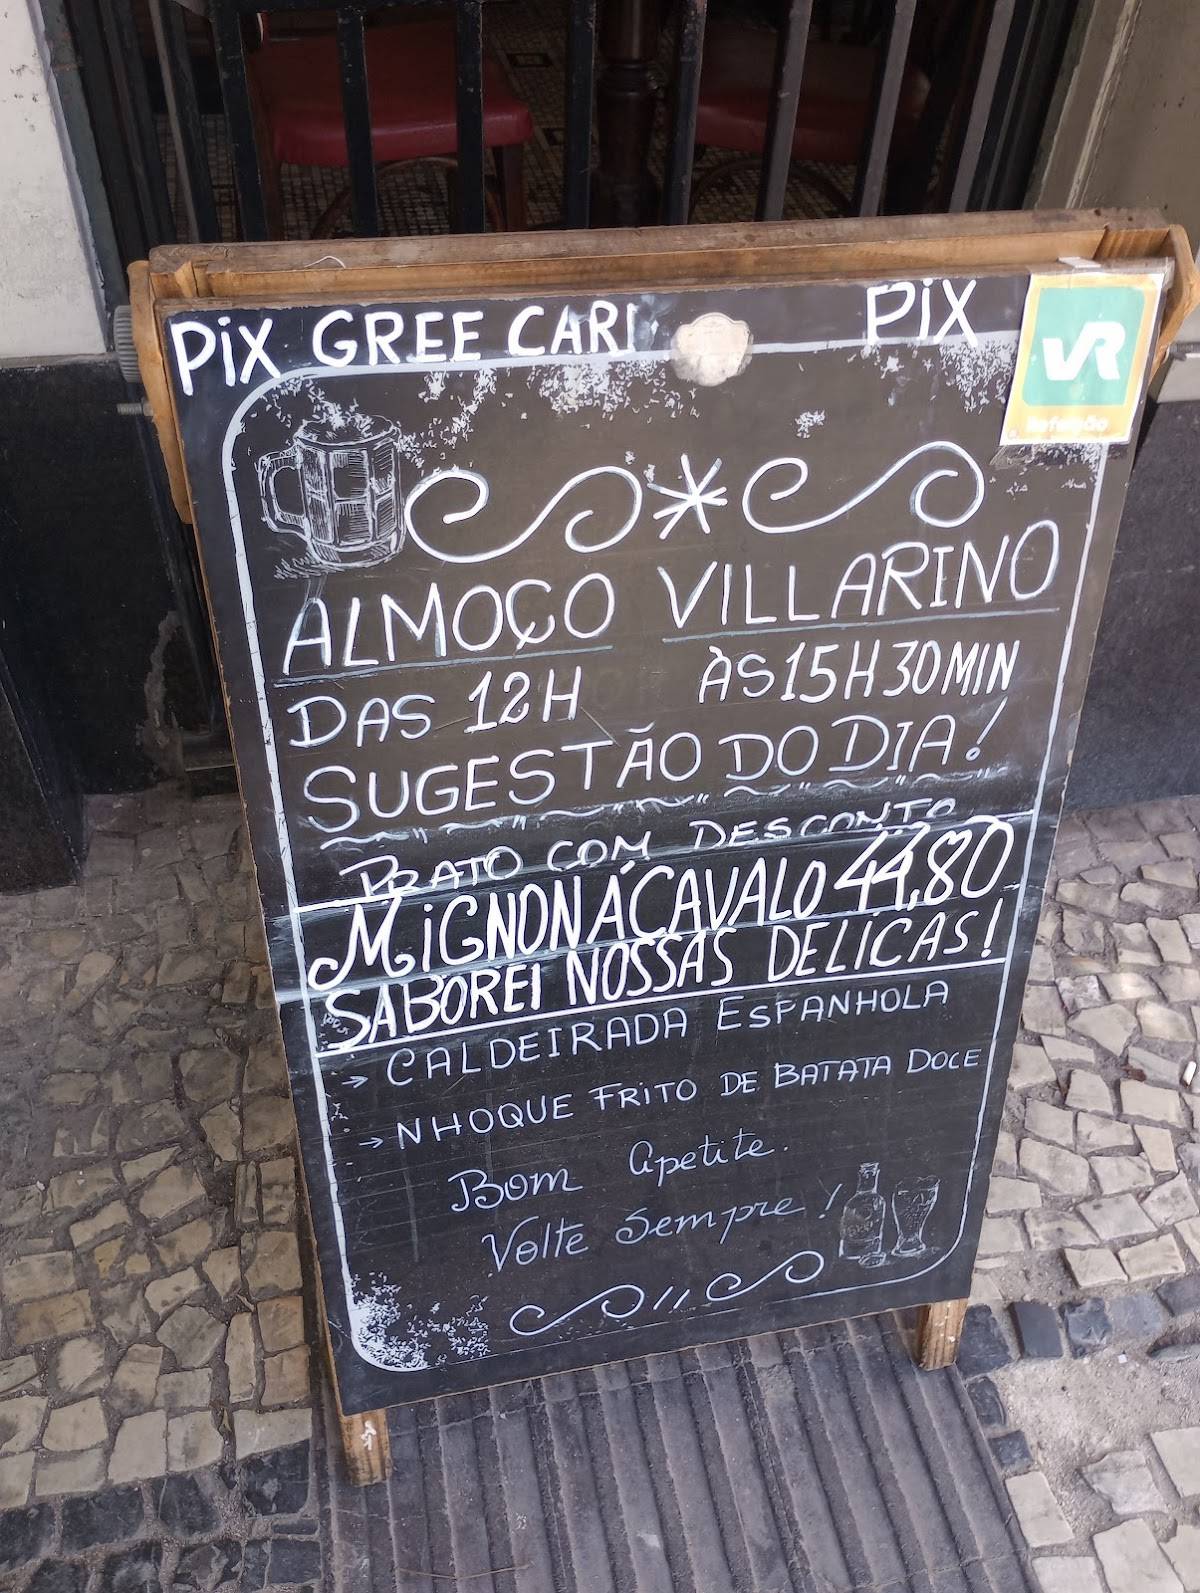 PiX GREE CARI PiX
VR
Refeição
ALMOÇO VILLARINO
DAS 12H ÀS 15H30MIN
SUGESTÃO DO DIA!
PRATO COM DESCONTO
MiGNON Á CAVALO 44,80
SABOREI NOSSAS DELICAS!
→ CALDEIRADA ESPANHOLA
→ NHOQUE FRITO DE BATATA DOCE
Bom apetite.
Volte sempre!